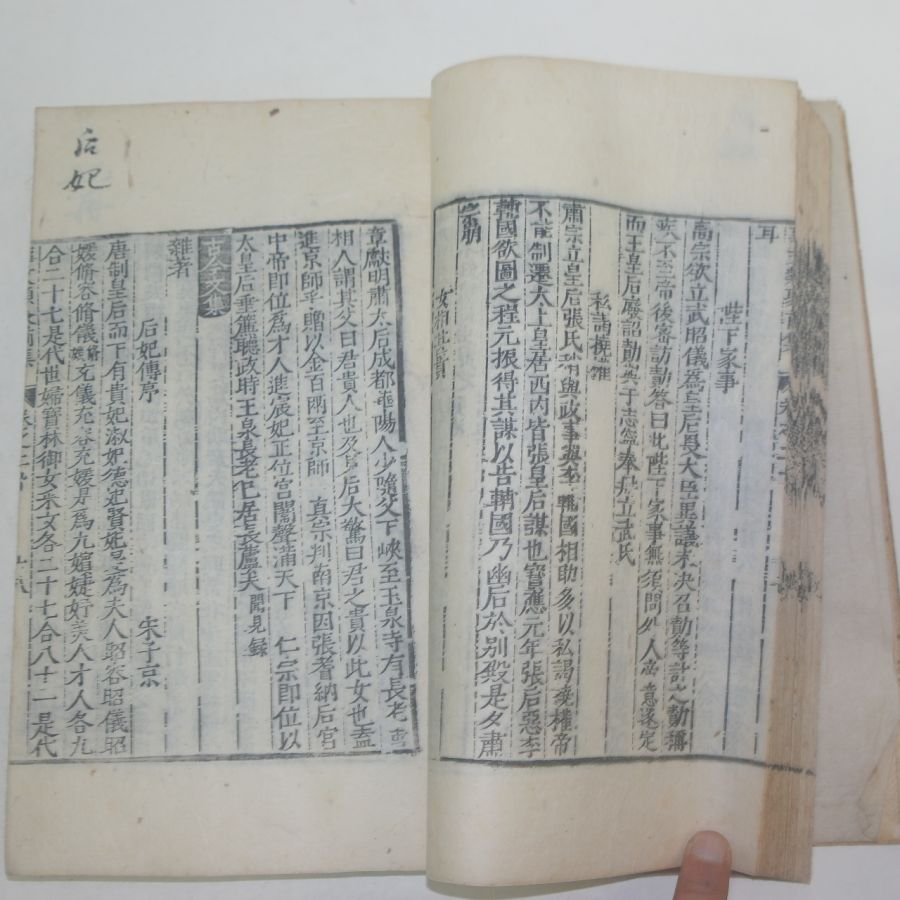 耳
陛下家事
高宗欲立武昭儀爲皇后畏大臣異議未決召勣等計之勣稱
疾不至帝後密訪勣答曰此陛下家事無須問外人帝意遂定
而王皇后廢詔勣與于志寧奉冊立武氏
私謁撓權
肅宗立皇后張氏稍與政事 輔國相助多以私謁撓權帝
不能制還太上皇居西内皆張皇后謀也寶應元年張后惡李
輔國欲圖之程元振得其謀以告輔國乃幽后於別殿是夕肅
宗崩
后妃
章獻明肅太后成都 陽人少隨父下峽至玉泉寺有長老
相人謂其父曰君貴人也及 后大驚曰君之貴以此女也盍
進京師乎贈以金百兩至京師 真宗判南京因張耆納后宮
中帝即位爲才人進宸妃正位宮闈聲滿天下 仁宗即位以
太皇后垂簾聽政時王泉長老已居長蘆矣聞見録
古今文集
雜著
后妃傳序 宋子京
唐制皇后而下有貴妃淑妃德妃賢妃是爲夫人昭容昭儀昭
媛脩容脩儀脩媛充儀充容充媛是爲九嬪婕妤美人才人各九
合二十七是代世婦寶林御女采女各二十七合八十一是代